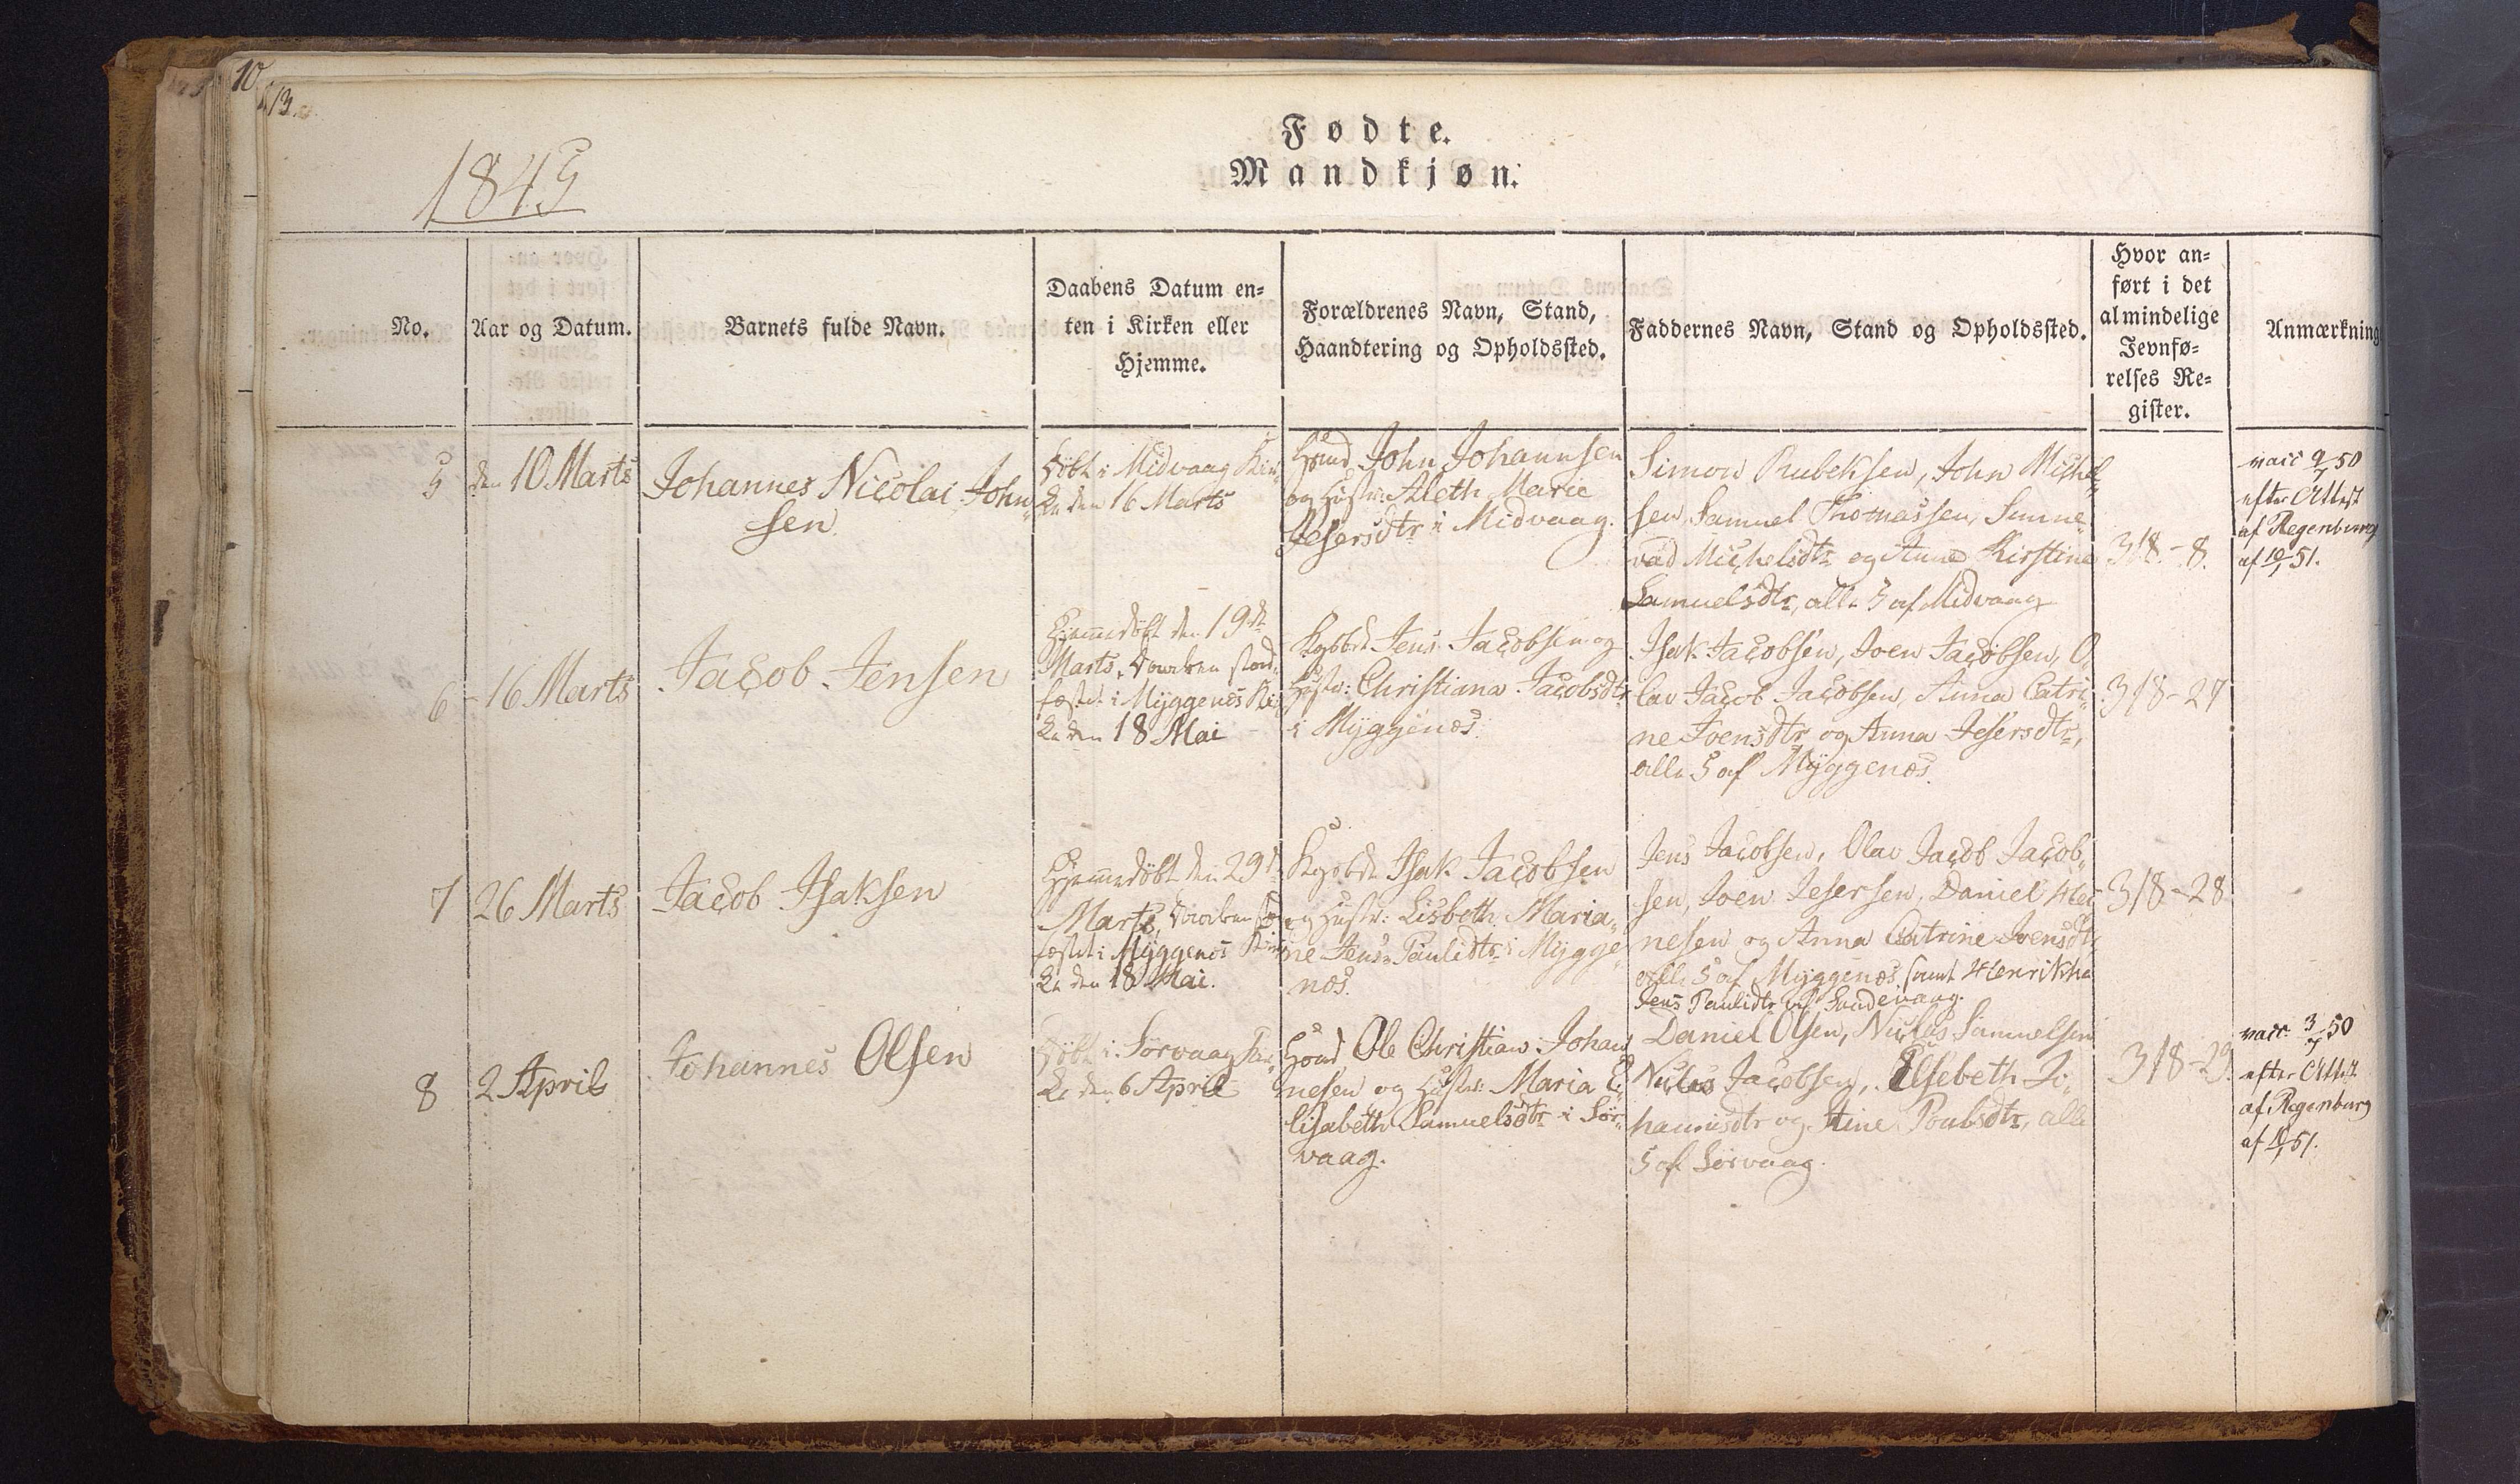 10
13.
Fødte.
Mandkjøn.
1845
No.
Aar og Datum.
Barnets fulde Navn.
Daabens Datum en-
ten i Kirken eller
Hjemme.
Forældrenes Navn, Stand,
Haandtering og Opholdssted.
Faddernes Navn, Stand og Opholdssted.
Hvor an-
ført i det
almindelige
Jevnfø-
relses Re-
gister.
Anmærkning
5
den 10 Marts
Johannes Nicolai John-
sen
Döbt i Midvaag Kir-
ke den 16 Marts
John Johannsen
og Hustr: Aleth Marie
Jesersdtr i Midvaag.
Simon Rubeksen, John Michel-
sen, Samuel Thomassen, Sunne-
vad Michelsdtr og Anna Kirstine
Samuelsdtr, alle 5 af Midvaag
318-8.
vacc 9/7 50
efter Attest
af Regenburg
af 51.
6
16 Marts
Jacob Jensen
Hjemmedöbt den 19de
Marts, Daaben stad-
fæstet i Myggenæs Kir-
ke den 18 Mai
Kgsbd: Jens Jacobsen og
Hustr: Christiana Jacobsdtr
i Myggenæs.
Isak Jacobsen, Joen Jacobsen, O-
lav Jacob Jacobsen, Anna Catri-
ne Joensdtr og Anna Jesersdtr,
alle 5 af Myggenæs.
318-27
7
26 Marts
Jacob Isaksen
Hjemmedöbt den 29de
Marts, Daaben stad-
fæstet i Myggenæs Kir-
ke den 18 Mai.
Kgsbd: Isak Jacobsen
og Hustr: Lisbeth Maria-
ne Jens Paulidtr i Mygge-
næs.
Jens Jacobsen, Olav Jacob Jacob-
sen, Joen Jesersen, Daniel
nesen og Anna Catrine Joensdtr
alle 5 af Myggenæs, samt Henrikka
Jens Paulidtr af Sandevaag.
318-28
8
2 April
Johannes Olsen
Döbt i Sörvaag Kir-
ke den 6 April
Ole Christian Johan-
nesen og Hustr: Maria E-
lisabeth Samuelsdtr i Sör-
vaag.
Daniel Olsen, Niclas Samuelsen
Niclas Jacobsen, Elsebeth Jo-
hannisdtr og Stine Poulsdtr, alle
5 af Sörvaag.
318-29.
vacc 3/7 50
efter Attest
af Regenburg
af 51.